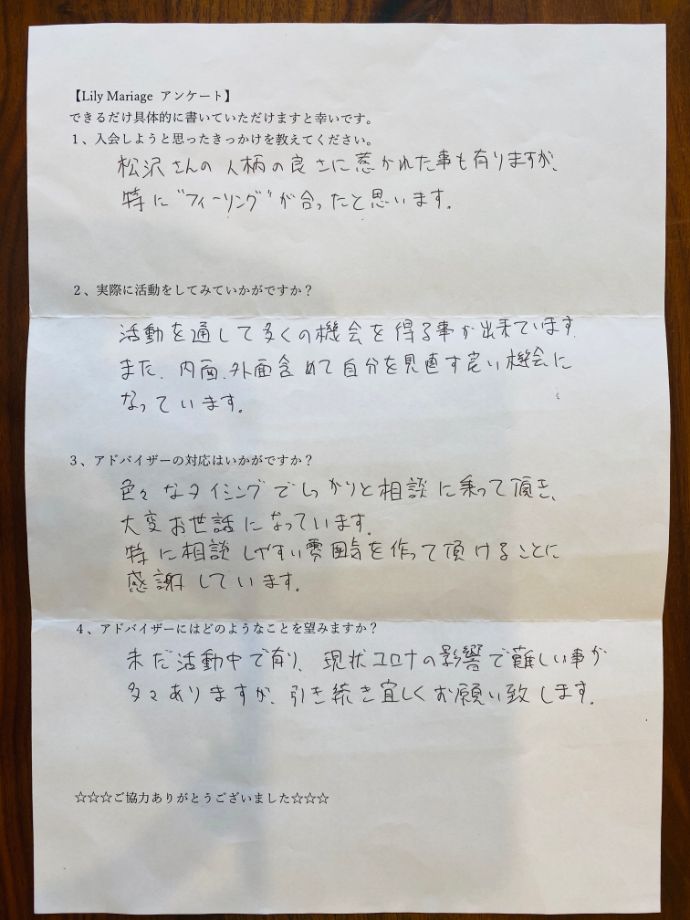 【Lily Mariage アンケート】
できるだけ具体的に書いていただけますと幸いです。
１、入会しようと思ったきっかけを教えてください。
松沢さんの人柄の良さに惹かれた事も有りますが、
特に"フィーリング"が合ったと思います。
２、実際に活動をしてみていかがですか？
活動を通して多くの機会を得る事が出来ています。
また、内面、外面含めて自分を見直す良い機会に
なっています。
３、アドバイザーの対応はいかがですか？
色々なタイミングでしっかりと相談に乗って頂き、
大変お世話になっています。
特に相談しやすい雰囲気を作って頂けることに
感謝しています。
４、アドバイザーにはどのようなことを望みますか？
未だ活動中で有り、現状コロナの影響で難しい事が
多々ありますが、引き続き宜しくお願い致します。
☆☆☆ご協力ありがとうございました☆☆☆